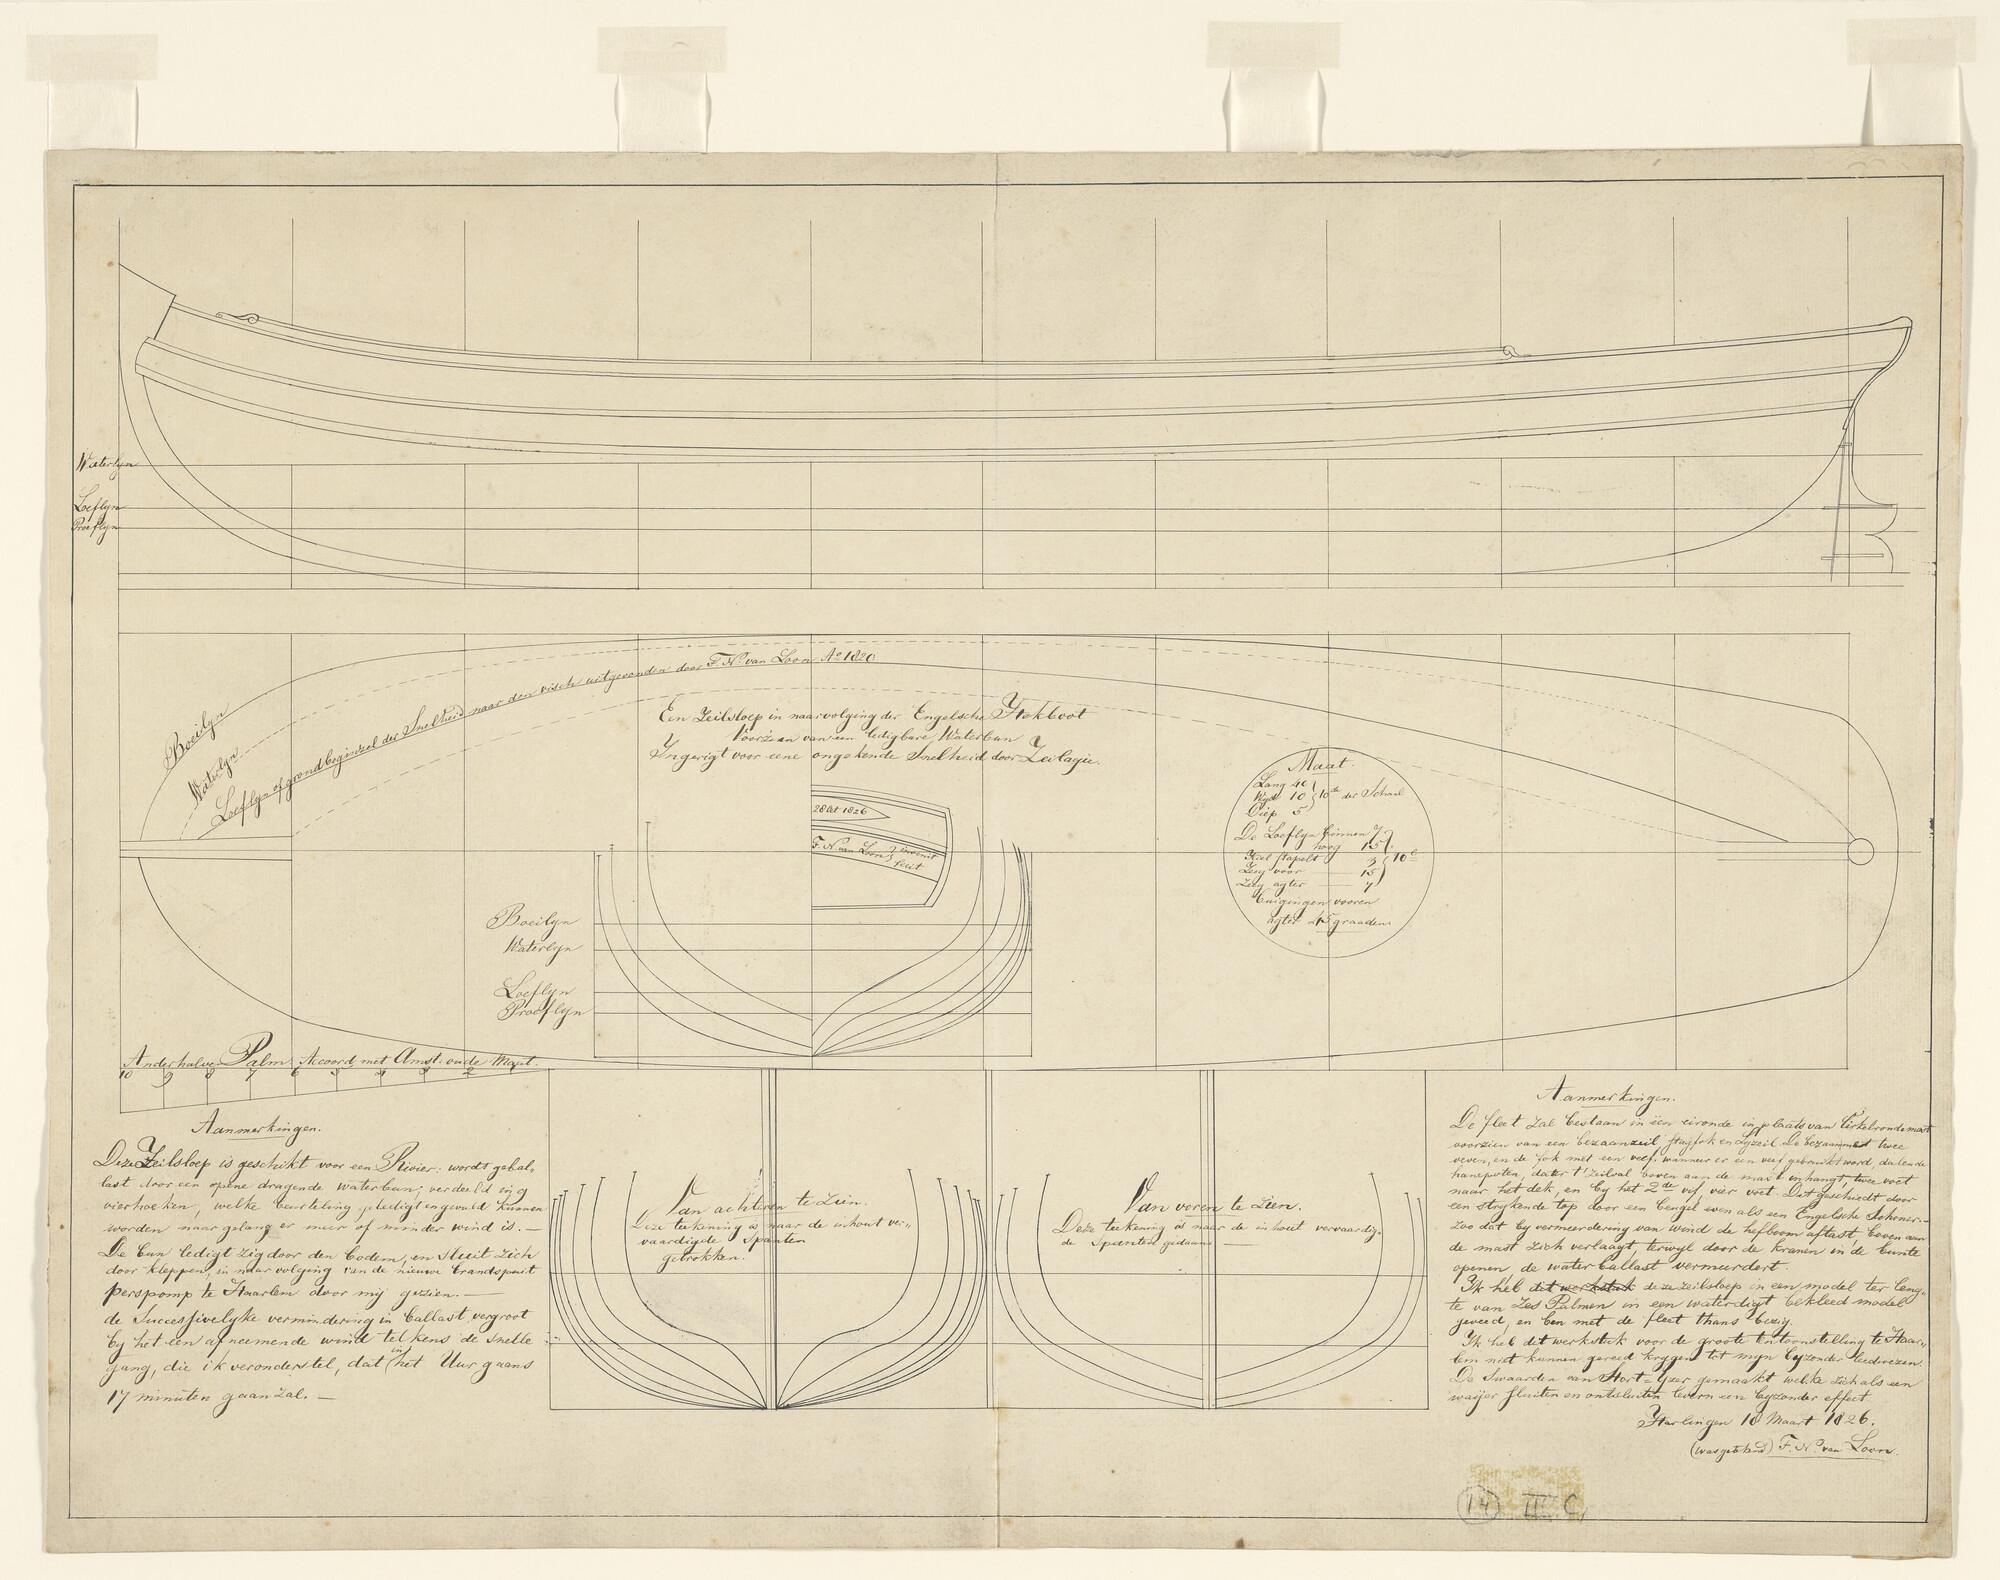 Waterlyn
Loeflyn
Proeflyn
Boeilyn
Waterlyn
Loeflyn of grondbeginzel der Snelheid naar den visch uitgevonden door F. N. van Loon Ao 1820
Een Zeilsloep in naarvolging der Engelsche
Voorzien van een ledigbare Waterbun
Ingerigt voor eene ongekende Snelheid door Zeilagie.
28 Oct 1826
F. N. van Loon invenit
fecit
Maat.
Lang 40
Wyd 10 10de der Schaal
Diep 5
De Loeflyn binnen 7
hoog 15
Kiel stapelt 3 10e
Zeeg voor 15
Zeeg agter 7
Buigingen vooren
agter 45 graaden
Boeilyn
Waterlyn
Loeflyn
Proeflyn
Anderhalve Palm Accoord met Amst: oude Maat.
10 9 8 7 6 5 4 3 2
Aanmerkingen.
Deze Zeilsloep is geschikt voor een Rivier: wordt gebal-
last door een opene dragende waterbun, verdeeld in 9
vierhoeken, welke beurteling geledigt en gevuld kunnen
worden naar gelang er meer of minder wind is. —
De bun ledigt zig door den bodem, en sluit zich
door kleppen, in naarvolging van de nieuwe brandspuit
perspomp te Haarlem door mij gezien. —
de Successivelyke vermindering in ballast vergroot
by het een afneemende wind telkens de snelle
gang, die ik veronderstel, dat in het Uur gaans
17 minuten gaan zal. —
Van achteren te Zien.
Deze teekening is naar de inhout ver-
vaardigde Spanten
getrokken.
Van voren te Zien.
Deze teekening is naar de inhout vervaardig-
de Spanten gedaan
Aanmerkingen.
De fleet zal bestaan in een eironde in plaats van Cirkelronde mast
voorzien van een bezaanzeil, stagfok en Lyzeil. De bezaan met twee
reven, en de fok met een reef. wanneer er een reef gebruikt word, dalen de
hanepoten, dater t'zeilval boven aan de mast inhangt, twee voet
naar het dek, en by het 2de rif, vier voet. Dit geschiedt door
een strykende top door een bengel even als een Engelsche Schoner.—
zoo dat by vermeerdering van wind de hefboom aftast, boven aan
de mast zich verlaagt, terwyl door de kranen in de bunte
openen de waterballast vermeerdert.
Ik heb deze zeilsloep in een model ter leng-
te van Zes Palmen in een waterdigt bekleed model
gereed, en ben met de fleet thans bezig.
Ik heb dit werkstuk voor de groote tentoonstelling te Haar-
lem niet kunnen gereed krygen tot myn byzonder leedwezen.
De Swaarden van Stort-Yzer gemaakt welke zich als een
waijer sluiten en ontsluiten levern een byzonder effect
Harlingen 18 Maart 1826.
(was getekend) F. N. van Loon.
14 II C